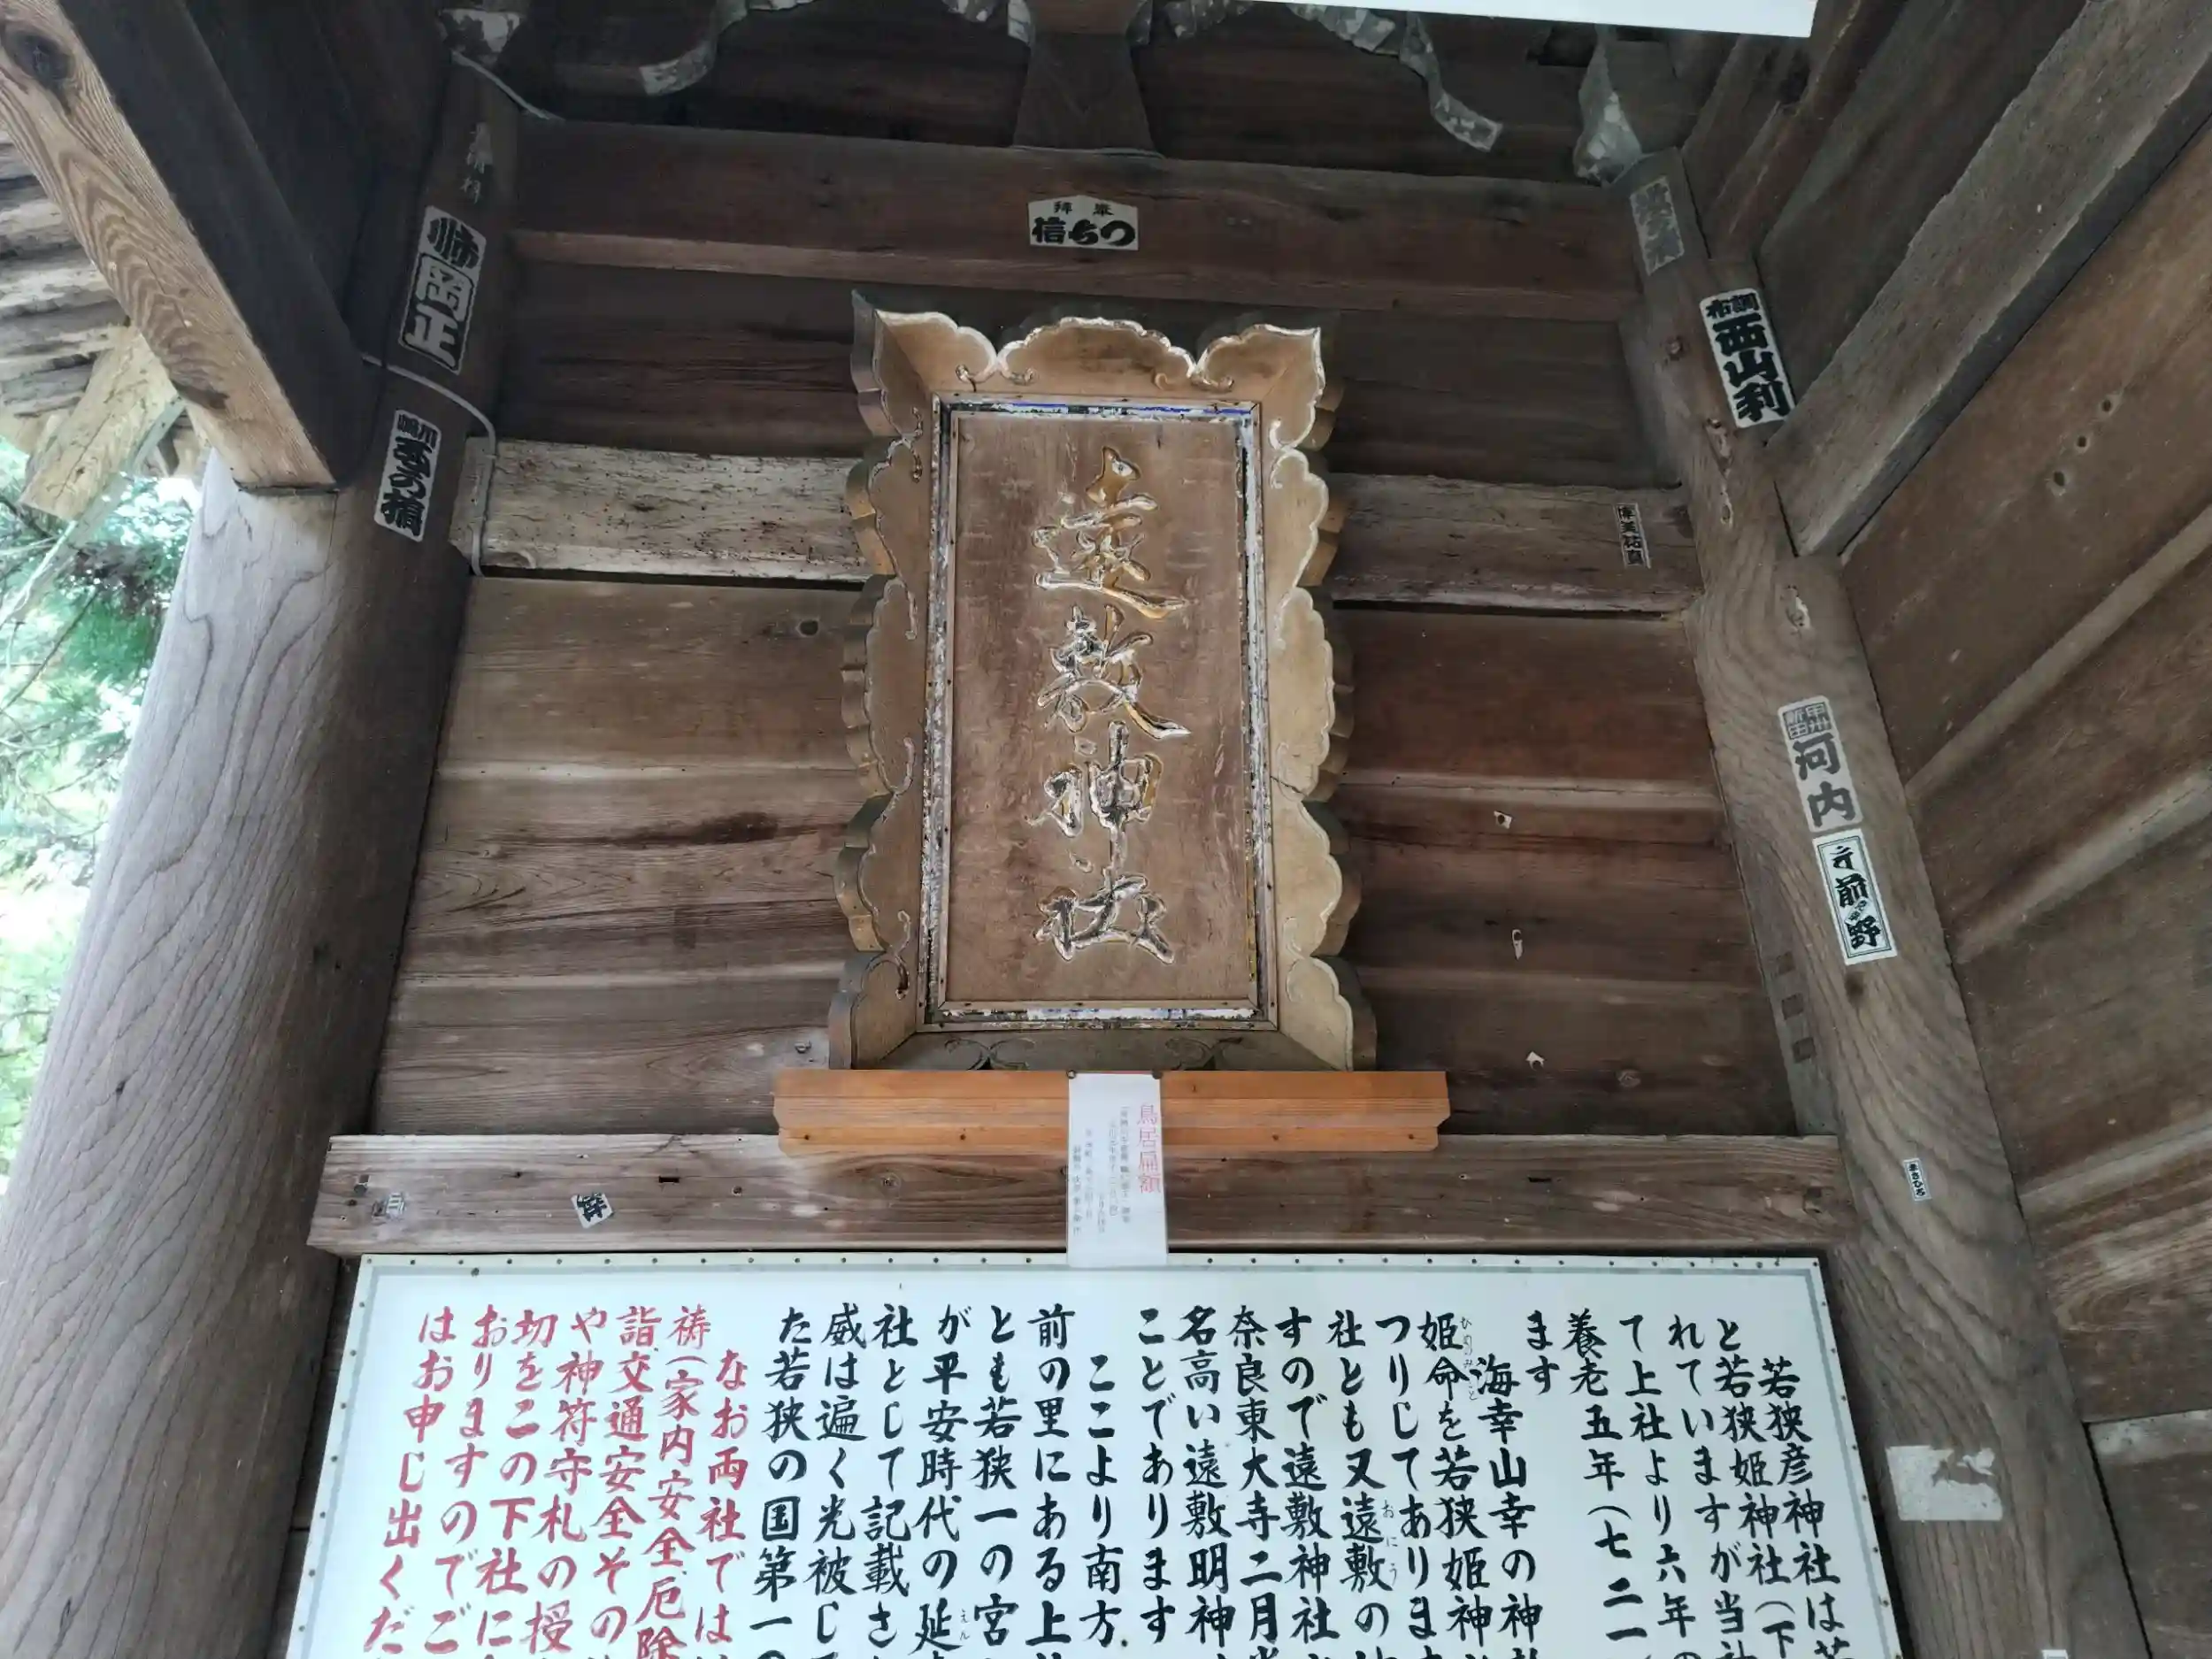 奉拝
信ちつ
岡正
西山利
甲州
新田
河内
前野
遠敷神社
鳥居扁額
若狭彦神社は若
と若狭姫神社(下
れていますが当社
て上社より六年の
養老五年(七二一
ます
海幸山幸の神
姫命を若狭姫神
ひめみこと
つりしてありま
社とも又遠敷の
おにう
すので遠敷神社
奈良東大寺二月堂
名高い遠敷明神
ことであります
ここより南方
前の里にある上
とも若狭一の宮
が平安時代の延
えん
社として記載さ
威は遍く光被し
た若狭の国第一の
なお両社では
祷(家内安全厄除
詣交通安全その
や神符守札の授
切をこの下社に
おりますのでご
はお申し出くだ